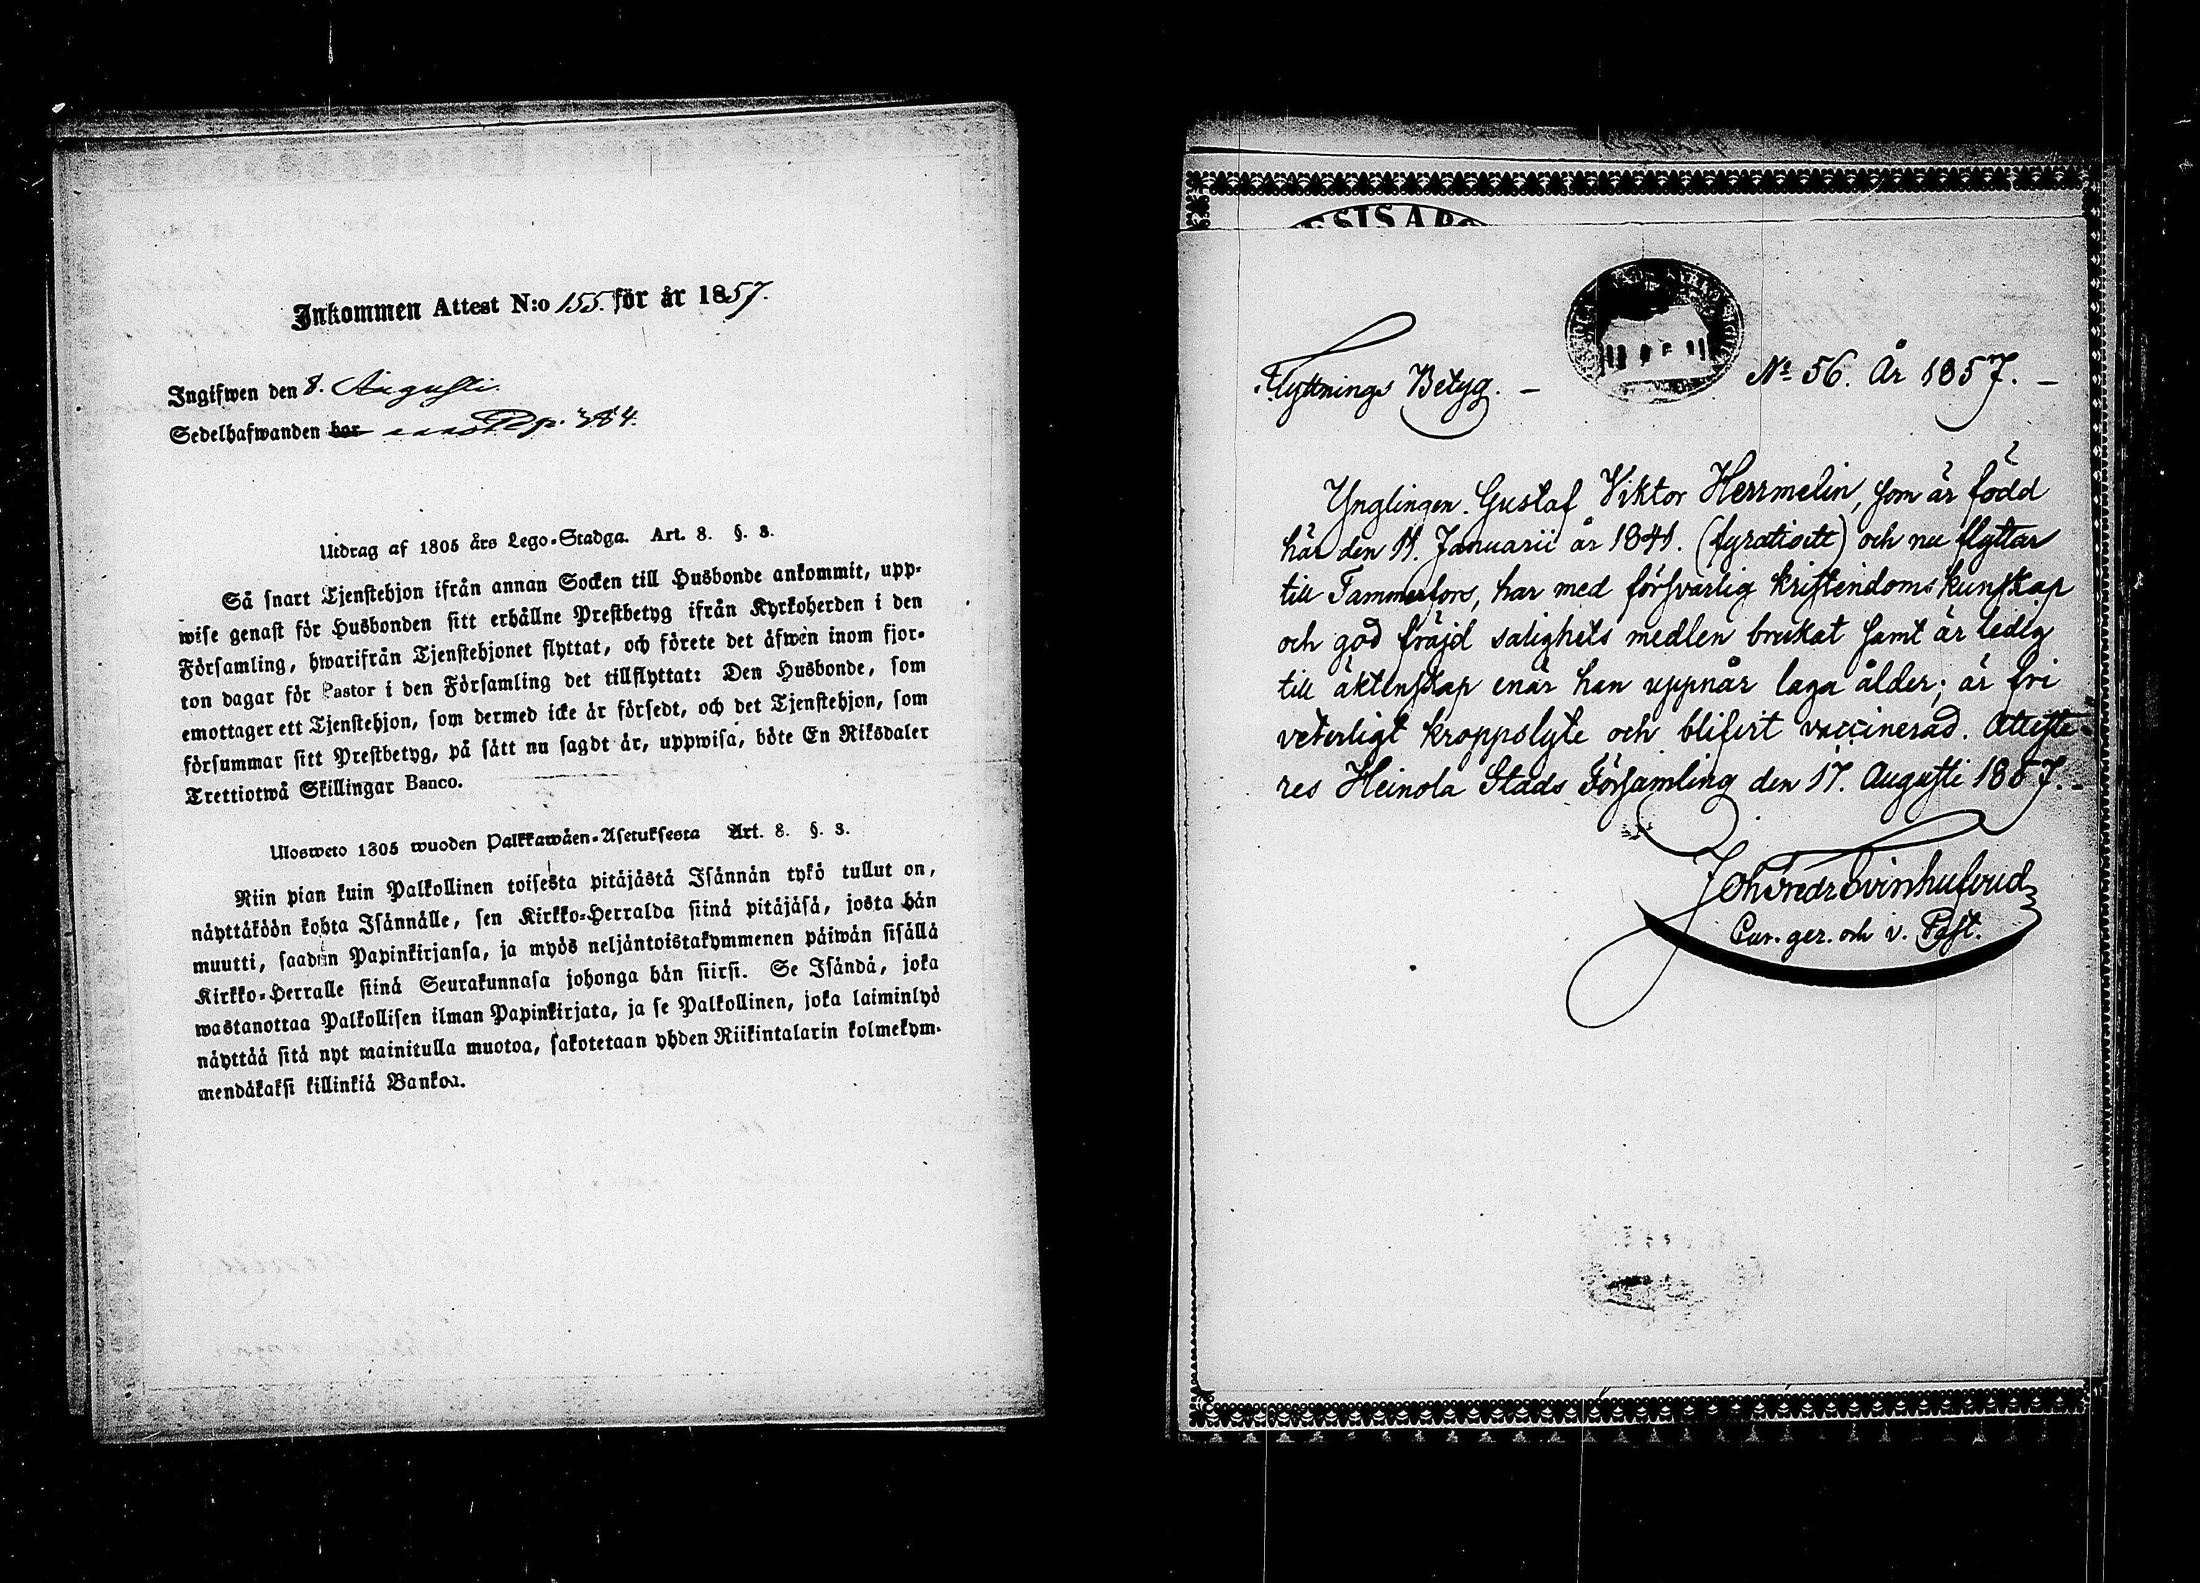 Inkommen Attest N:o 155. för år 1857.
Ingifwen den 8. Augusti.
Sedelhafwanden har p. 284.
Utdrag af 1805 års Lego-Stadga. Art. 8. §. 3.
Så snart Tjenstehjon ifrån annan Socken till Husbonde ankommit, upp-
wise genast för Husbonden sitt erhållne Prestbetyg ifrån Kyrkoherden i den
Församling, hwarifrån Tjenstehjonet flyttat, och förete det äfwen inom fjor-
ton dagar för Pastor i den Församling det tillflyttat: Den Husbonde, som
emottager ett Tjenstehjon, som dermed icke är försedt, och det Tjenstehjon, som
försummar sitt Prestbetyg, på sätt nu sagdt är, uppwisa, böte En Riksdaler
Trettiotwå Skillingar Banco.
Ulosweto 1805 wuoden Palkkawäen-Asetuksesta Art. 8. §. 3.
Niin pian kuin Palkollinen toisesta pitäjästä Isännän tykö tullut on,
näyttäköön kohta Isännälle, sen Kirkko-Herralda siinä pitäjäsä, josta hän
muutti, saadun Papinkirjansa, ja myös neljäntoistakymmenen päiwän sisällä
Kirkko-Herralle siinä Seurakunnasa johonga hän siirsi. Se Isändä, joka
wastanottaa Palkollisen ilman Papinkirjata, ja se Palkollinen, joka laiminlyö
näyttää sitä nyt mainitulla muotoa, sakotetaan yhden Riikintalarin kolmekym-
mendäkaksi killinkiä Bankoa.
Flyttnings Betyg. – No 56. År 1857. –
Ynglingen Gustaf Viktor Herrmelin, som är född
här den 11. Januarii år 1841. (fyratioett) och nu flyttar
till Tammerfors, har med försvarlig kristendomskunskap
och god fräjd salighets medlen brukat samt är ledig
till äktenskap enär han uppnår laga ålder; är fri
veterligt kroppslyte och blifvit vaccinerad. Atteste-
res Heinola Stads Församling den 17. Augusti 1857. –
Joh Fredr Svinhufvud
Cur. ger. och v. Past.